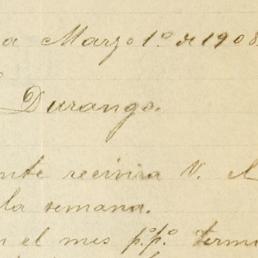 a Marzo 1º de 1908
Durango.
nte recivira V. el
la semana.
n el mes p.º p.º termi